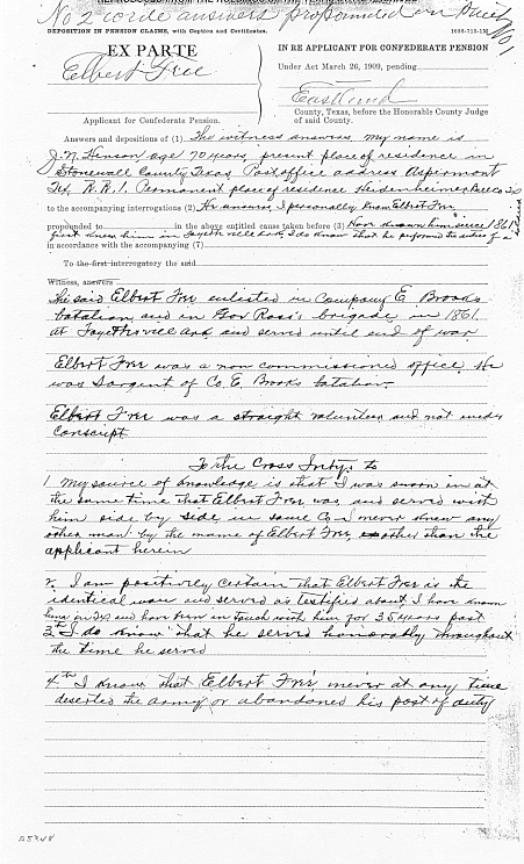 No 2 write answers propounded on Direct
No 1
DEPOSITION IN PENSION CLAIMS, with Caption and Certificates.
EX PARTE
Elbert Free
Applicant for Confederate Pension.
IN RE APPLICANT FOR CONFEDERATE PENSION
Under Act March 26, 1909, pending
Eastland
County, Texas, before the Honorable County Judge
of said County.
Answers and depositions of (1) The witness answers, my name is
J. N. Henson age 70 years, present place of residence in
Stonewall County Texas Postoffice address Aspermont
Tex, R.R.1. Permanent place of residence Heidenheimer Bell Co
to the accompanying interrogations (2) He answers, I personally know Elbert Free
propounded to in the above entitled cause taken before (3) Have known him since 1861
first knew him in Fayetteville Ark, I do know that he performed the duties of a
in accordance with the accompanying (7)
To the first interrogatory the said
Witness, answers
The said Elbert Free enlisted in Company E Brooks
batalion, and in Gov Ross's brigade in 1861
at Fayettevill Ark, and served until end of war
Elbert Free was a non commissioned officer, He
was Sargent of Co. E. Brooks batalion
Elbert Free was a straight volunteer and not under
Conscript
To the Cross Intys to
1 My source of knowledge is that I was sworn in at
the same time that Elbert Free was, and served with
him side by side in same Co. I never knew any
other man by the name of Elbert Free other than the
applicant herein
2. I am positively certain that Elbert Free is the
identical man and served as testified about, I have known
him in Tex and have been in touch with him for 35 years past
3rd I do know that he served honorably throughout
the time he served
4th I know that Elbert Free never at any time
deserted the army or abandoned his post of duty